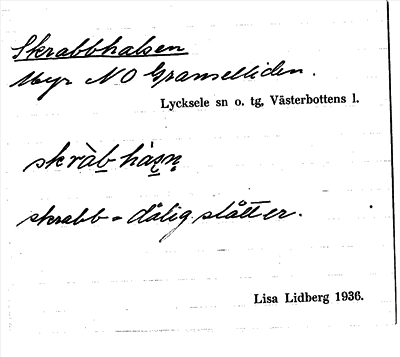 Skrabbhalsen
Myr NO Granselliden.
Lycksele sn o. tg, Västerbottens l.
skràb-hàsn
skrabb = dålig slåtter.
Lisa Lidberg 1936.